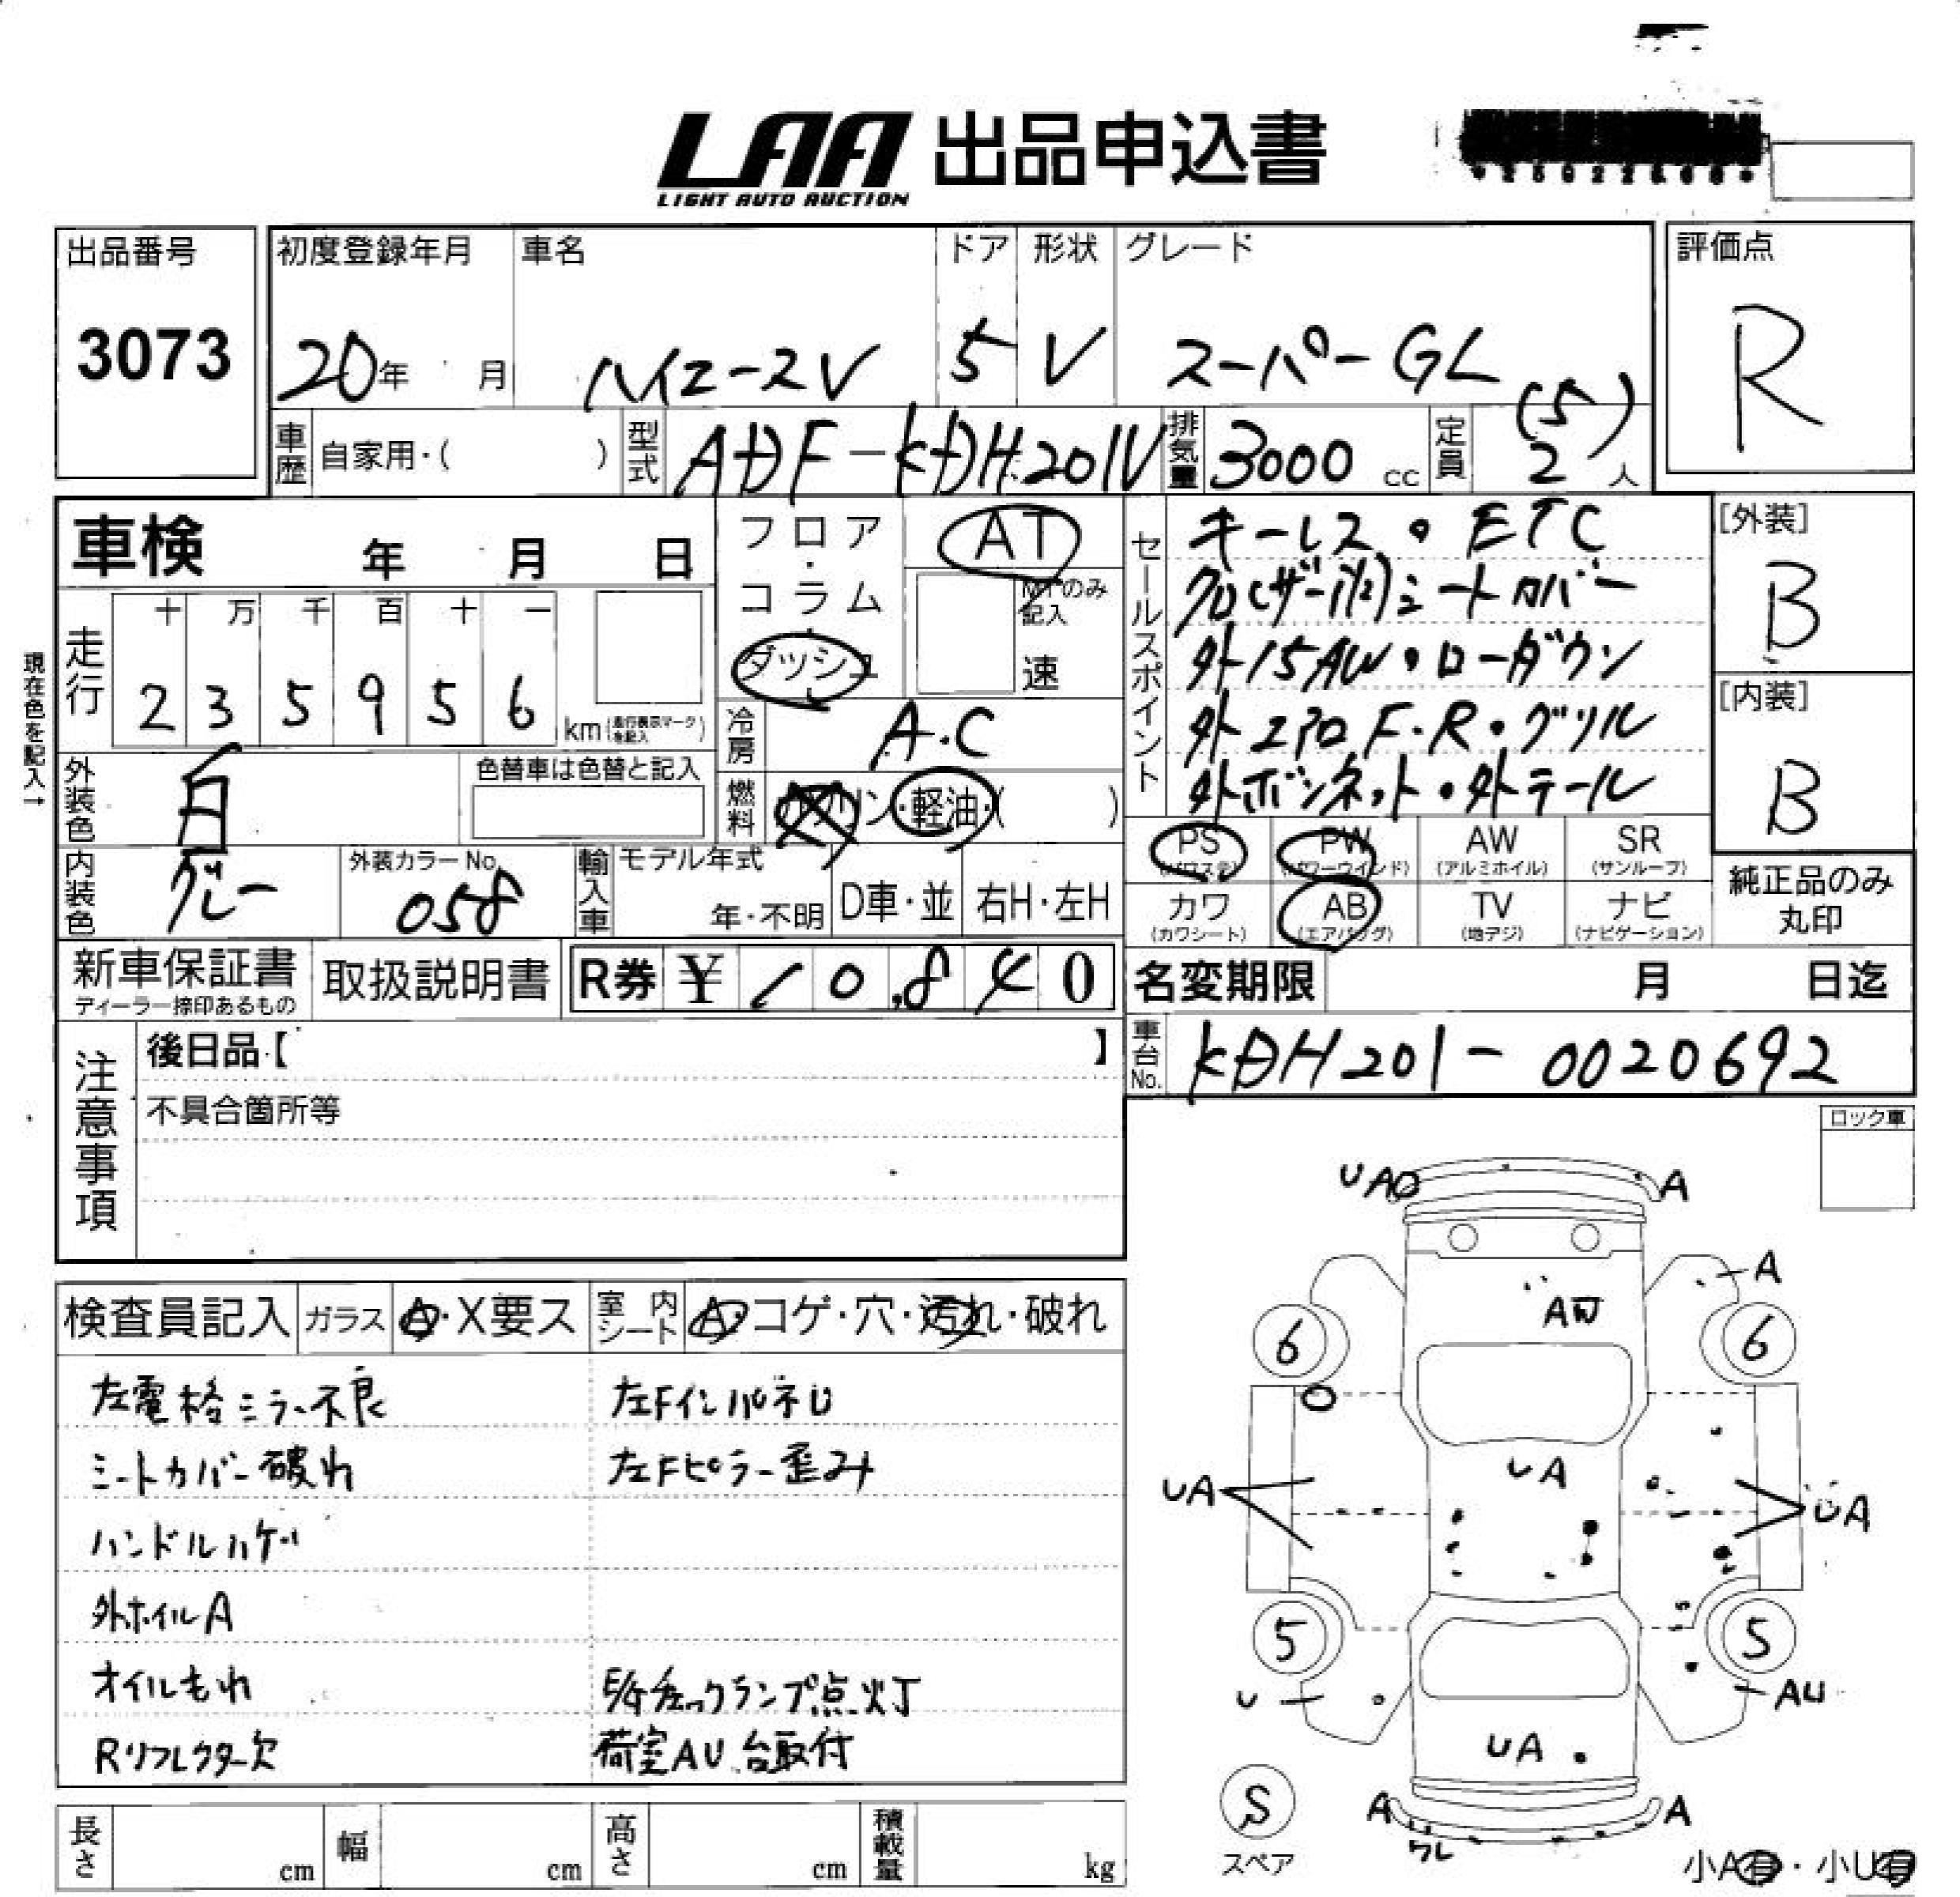 LAA 出品申込書
LIGHT AUTO AUCTION
出品番号
3073
初度登録年月
20年 月
車名
ハイエースV
ドア
5
形状
V
グレード
スーパーGL
評価点
R
車歴 自家用・( )
型式 ADF-KDH201V
排気量 3000 cc
定員 (5) 2 人
車検 年 月 日
フロア・コラム・ダッシュ
AT
MTのみ記入
速
セールスポイント
キーレス・ETC
シートカバー
外15AW・ローダウン
外エアロF.R・グリル
外ボンネット・外テール
[外装]
B
[内装]
B
現在色を記入→
走行
十 万 千 百 十 一
2 3 5 9 5 6
km(走行表示マークを記入)
冷房 A.C
燃料 ガソリン・軽油・( )
外装色 白
色替車は色替と記入
内装色 グレー
外装カラーNo. 058
輸入車 モデル年式 年・不明
D車・並 右H・左H
PS (パワステ)
PW (パワーウインド)
AW (アルミホイル)
SR (サンルーフ)
カワ (カワシート)
AB (エアバッグ)
TV (地デジ)
ナビ (ナビゲーション)
純正品のみ丸印
新車保証書
ディーラー捺印あるもの
取扱説明書
R券 ¥10,840
名変期限 月 日迄
車台No. KDH201-0020692
注意事項
後日品【 】
不具合箇所等
ロック車
検査員記入 ガラス A・X要ス 室内シート A・コゲ・穴・汚れ・破れ
左電格ミラー不良
左FインパネU
シートカバー破れ
左Fピラー歪み
ハンドルハゲ
外ホイルA
オイルもれ
E/Gチェックランプ点灯
Rリフレクター欠
荷室AU 台取付
UA
A
A
6
6
UA
UA
UA
5
5
U
AU
UA
S
スペア
A
A
ワレ
小A有・小U有
長さ cm
幅 cm
高さ cm
積載量 kg